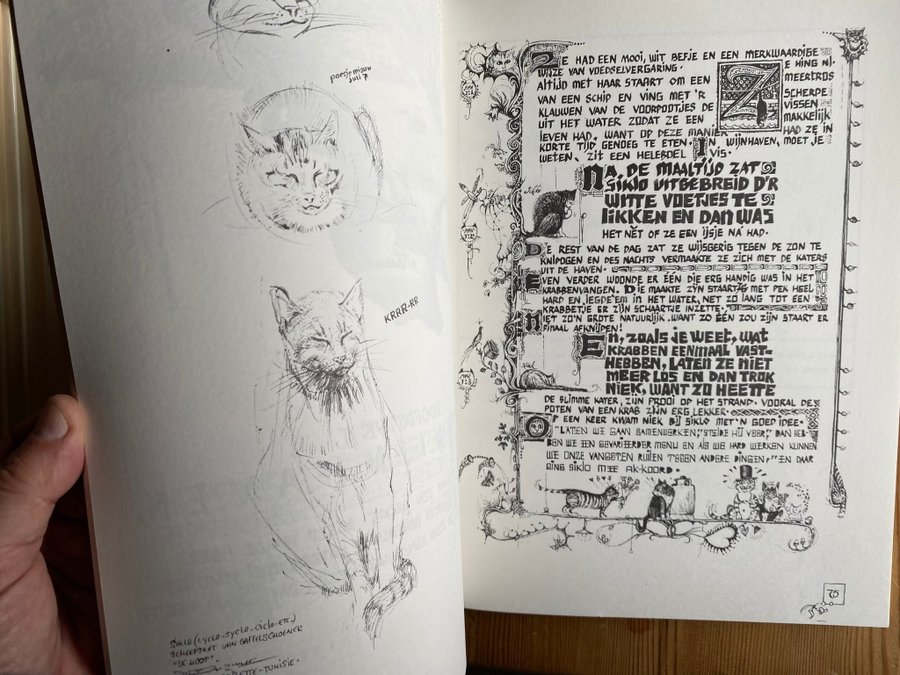 poesje mizou
juli '71
KRRR-RR
SIKLO (CYCLO-SYCLO-CICLO-ETC)
SCHEEPSKAT VAN GAFFELSCHOENER
"DE HOOP".
-TUNISIE.
ZE HAD EEN MOOI, WIT BEFJE EN EEN MERKWAARDIGE
WIJZE VAN VOEDSELVERGARING. ZE HING N.L.
ALTIJD MET HAAR STAART OM EEN MEERTROS
VAN EEN SCHIP EN VING MET 'R SCHERPE
KLAUWEN VAN DE VOORPOOTJES DE VISSEN
UIT HET WATER ZODAT ZE EEN MAKKELIJK
LEVEN HAD. WANT OP DEZE MANIER HAD ZE IN
KORTE TIJD GENOEG TE ETEN. IN WIJNHAVEN, MOET JE
WETEN, ZIT EEN HELEBOEL VIS.
NA, DE MAALTIJD ZAT
SIKLO UITGEBREID D'R
WITTE VOETJES TE
LIKKEN EN DAN WAS
HET NÈT OF ZE EEN IJSJE NA HAD.
DE REST VAN DE DAG ZAT ZE WIJSGERIG TEGEN DE ZON TE
KNIPOGEN EN DES NACHTS VERMAAKTE ZE ZICH MET DE KATERS
UIT DE HAVEN.
EVEN VERDER WOONDE ER ÉÉN DIE ERG HANDIG WAS IN HET
KRABBENVANGEN. DIE MAAKTE ZIJN STAARTJE MET PEK HEEL
HARD EN LEGDE'EM IN HET WATER, NET ZO LANG TOT EEN
KRABBETJE ER ZIJN SCHAARTJE INZETTE.
NIET ZO'N GROTE NATUURLIJK. WANT ZO ÉÉN ZOU ZIJN STAART ER
FINAAL AFKNIJPEN!
EN, ZOALS JE WEET, WAT
KRABBEN EENMAAL VAST-
HEBBEN, LATEN ZE NIET
MEER LOS EN DAN TROK
NIEK, WANT ZO HEETTE
DE SLIMME KATER, ZIJN PROOI OP HET STRAND. VOORAL DE
POTEN VAN EEN KRAB ZIJN ERG LEKKER.
OP EEN KEER KWAM NIEK BIJ SIKLO MET'N GOED IDEE.
"LATEN WE GAAN SAMENWERKEN," STELDE HIJ VOOR," DAN HEB-
BEN WE EEN GEVARIEERDER MENU EN ALS WE HARD WERKEN KUNNEN
WE ONZE VANGSTEN RUILEN TEGEN ANDERE DINGEN," EN DAAR
GING SIKLO MEE AK-KOORD.
75